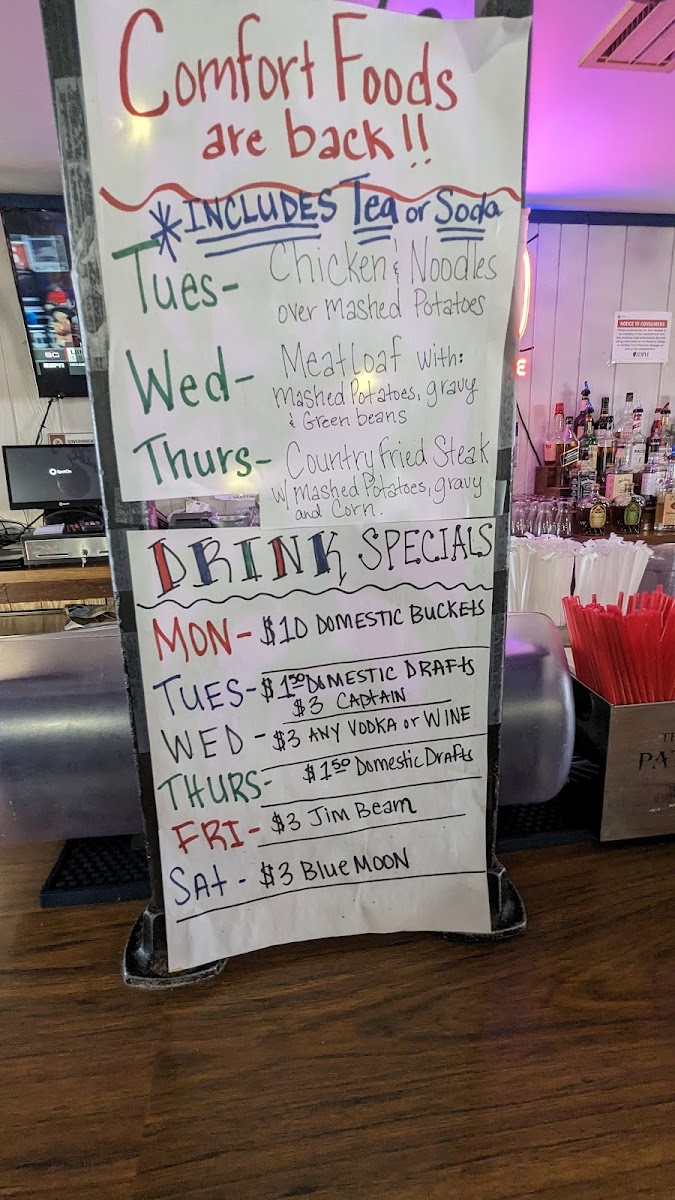 Comfort Foods
are back!!
*INCLUDES Tea or Soda
Tues- Chicken & Noodles
over Mashed Potatoes
Wed- Meatloaf with:
Mashed Potatoes, gravy
& Green beans
Thurs- Country Fried Steak
w/ Mashed Potatoes, gravy
and Corn.
DRINK SPECIALS
MON- $10 DOMESTIC BUCKETS
TUES- $1.50 DOMESTIC DRAFTS
$3 CAPTAIN
WED - $3 ANY VODKA or WINE
THURS- $1.50 Domestic Drafts
FRI- $3 Jim Beam
SAt - $3 Blue MOON
NOTICE TO CONSUMERS
IDPH
SpotOn
ESPN
SC
PAT